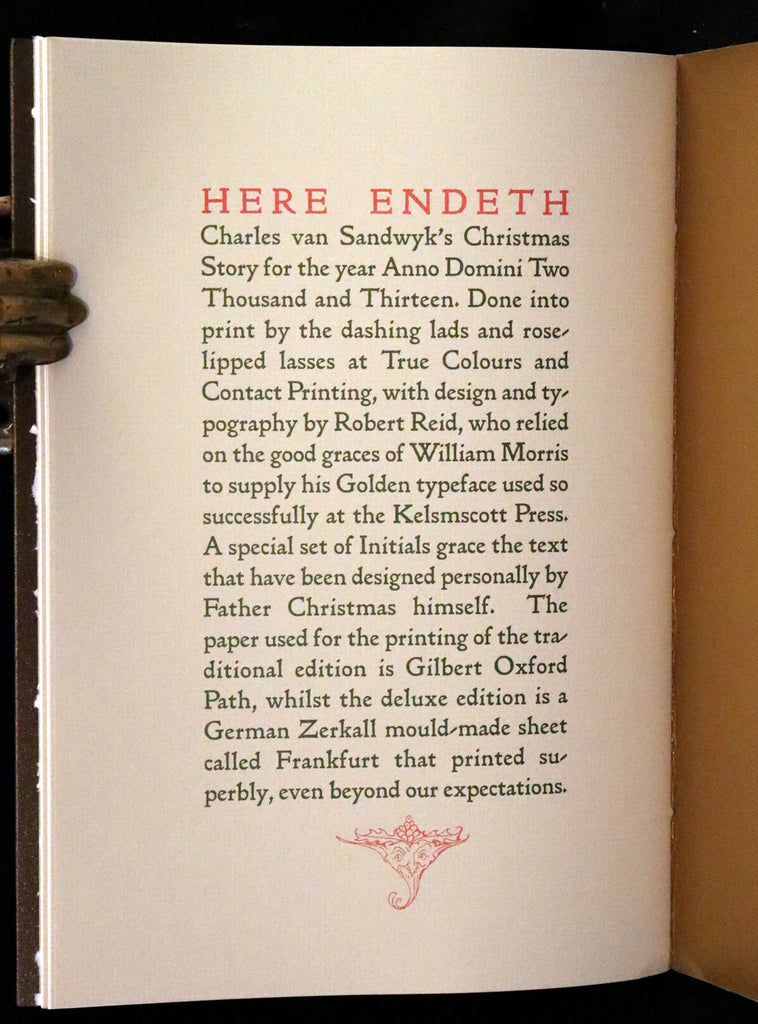 HERE ENDETH
Charles van Sandwyk's Christmas
Story for the year Anno Domini Two
Thousand and Thirteen. Done into
print by the dashing lads and rose-
lipped lasses at True Colours and
Contact Printing, with design and ty-
pography by Robert Reid, who relied
on the good graces of William Morris
to supply his Golden typeface used so
successfully at the Kelsmscott Press.
A special set of Initials grace the text
that have been designed personally by
Father Christmas himself. The
paper used for the printing of the tra-
ditional edition is Gilbert Oxford
Path, whilst the deluxe edition is a
German Zerkall mould-made sheet
called Frankfurt that printed su-
perbly, even beyond our expectations.